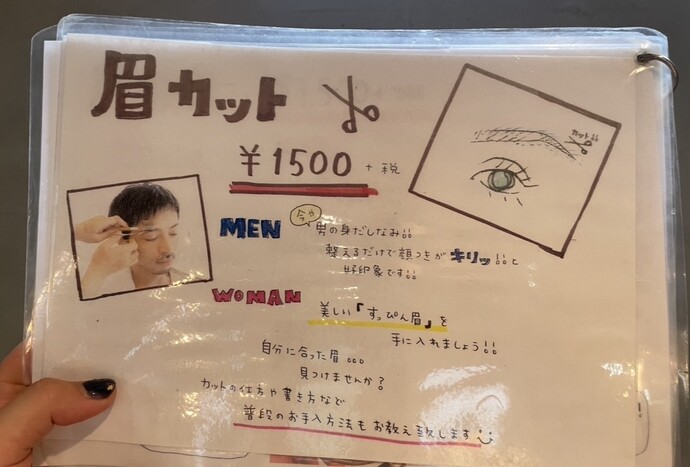 眉カット
¥1500 +税
カット!!
MEN 今や 男の身だしなみ!!
整えるだけで顔つきがキリッ!!!と
好印象です!!
WOMAN 美しい「すっぴん眉」を
手に入れましょう!!
自分に合った眉...
見つけませんか?
カットの仕方や書き方など
普段のお手入方法もお教え致します